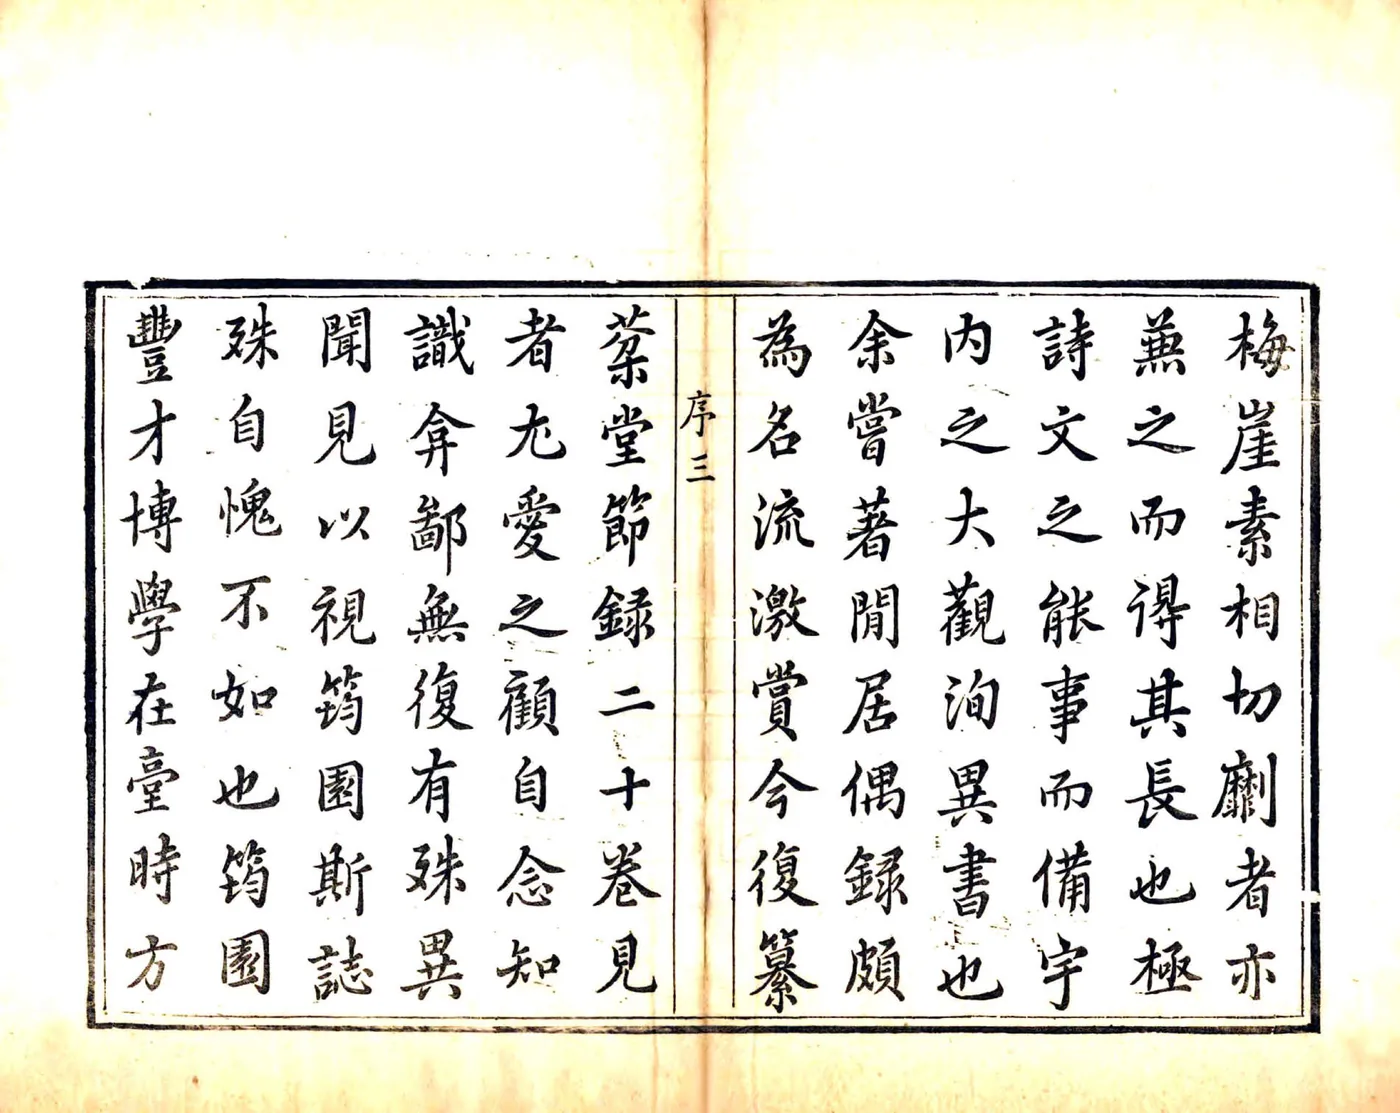 梅崖素相切劘者亦
兼之而得其長也極
詩文之能事而備宇
內之大觀洵異書也
余嘗著閒居偶録頗
為名流激賞今復纂
序三
菉堂節録二十卷見
者尤愛之顧自念知
識弇鄙無復有殊異
聞見以視筠園斯誌
殊自愧不如也筠園
豐才博學在臺時方